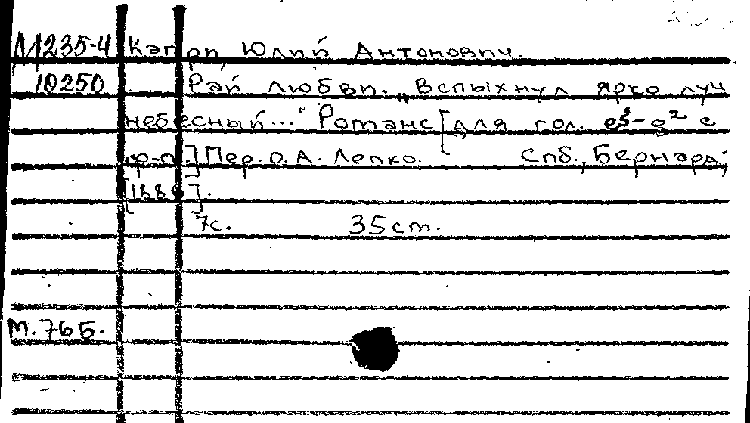 М235-4 Капри, Юлий Антонович.
10250 Рай любви. „Вспыхнул ярко луч
небесный..." Романс [для гол. es¹-g² с
ф-п.] Пер. О.А. Лепко. Спб., Бернард,
[1886].
7с. 35cm.
М.765.